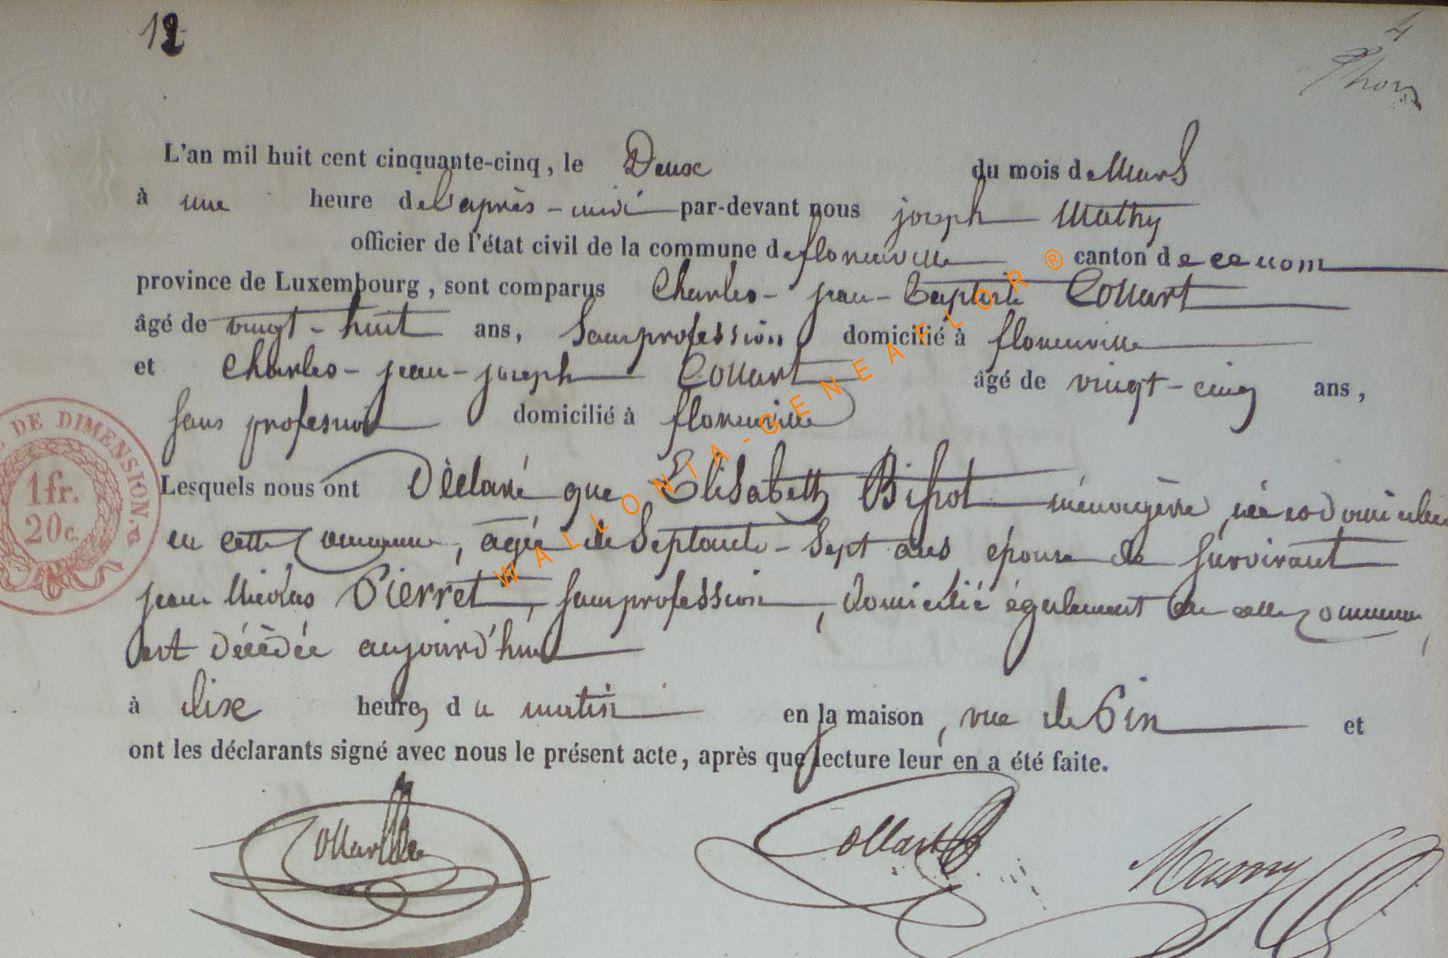 12
4
L'an mil huit cent cinquante-cinq, le Deux du mois de Mars
à une heure de l'après-midi par-devant nous joseph Mathy
officier de l'état civil de la commune de florenville canton de ce nom
province de Luxembourg, sont comparus Charles-jean-baptiste Collart
âgé de vingt-huit ans, Sans profession domicilié à florenville
et Charles-jean-joseph Collart âgé de vingt-cinq ans,
sans profession domicilié à florenville
Lesquels nous ont Déclaré que Elisabeth ménagère, née et Domiciliée
en cette Commune, agée de Septante-Sept ans épouse de Survivant
jean Nicolas Pierret, sans profession, domicilié également en cette Commune,
est décédée aujourd'hui
à dix heures du matin en la maison, rue de Pin et
ont les déclarants signé avec nous le présent acte, après que lecture leur en a été faite.
Collart Collart
DE DIMENSION.
1 fr.
20 c.
WALLONIA-GENEAFLOR®